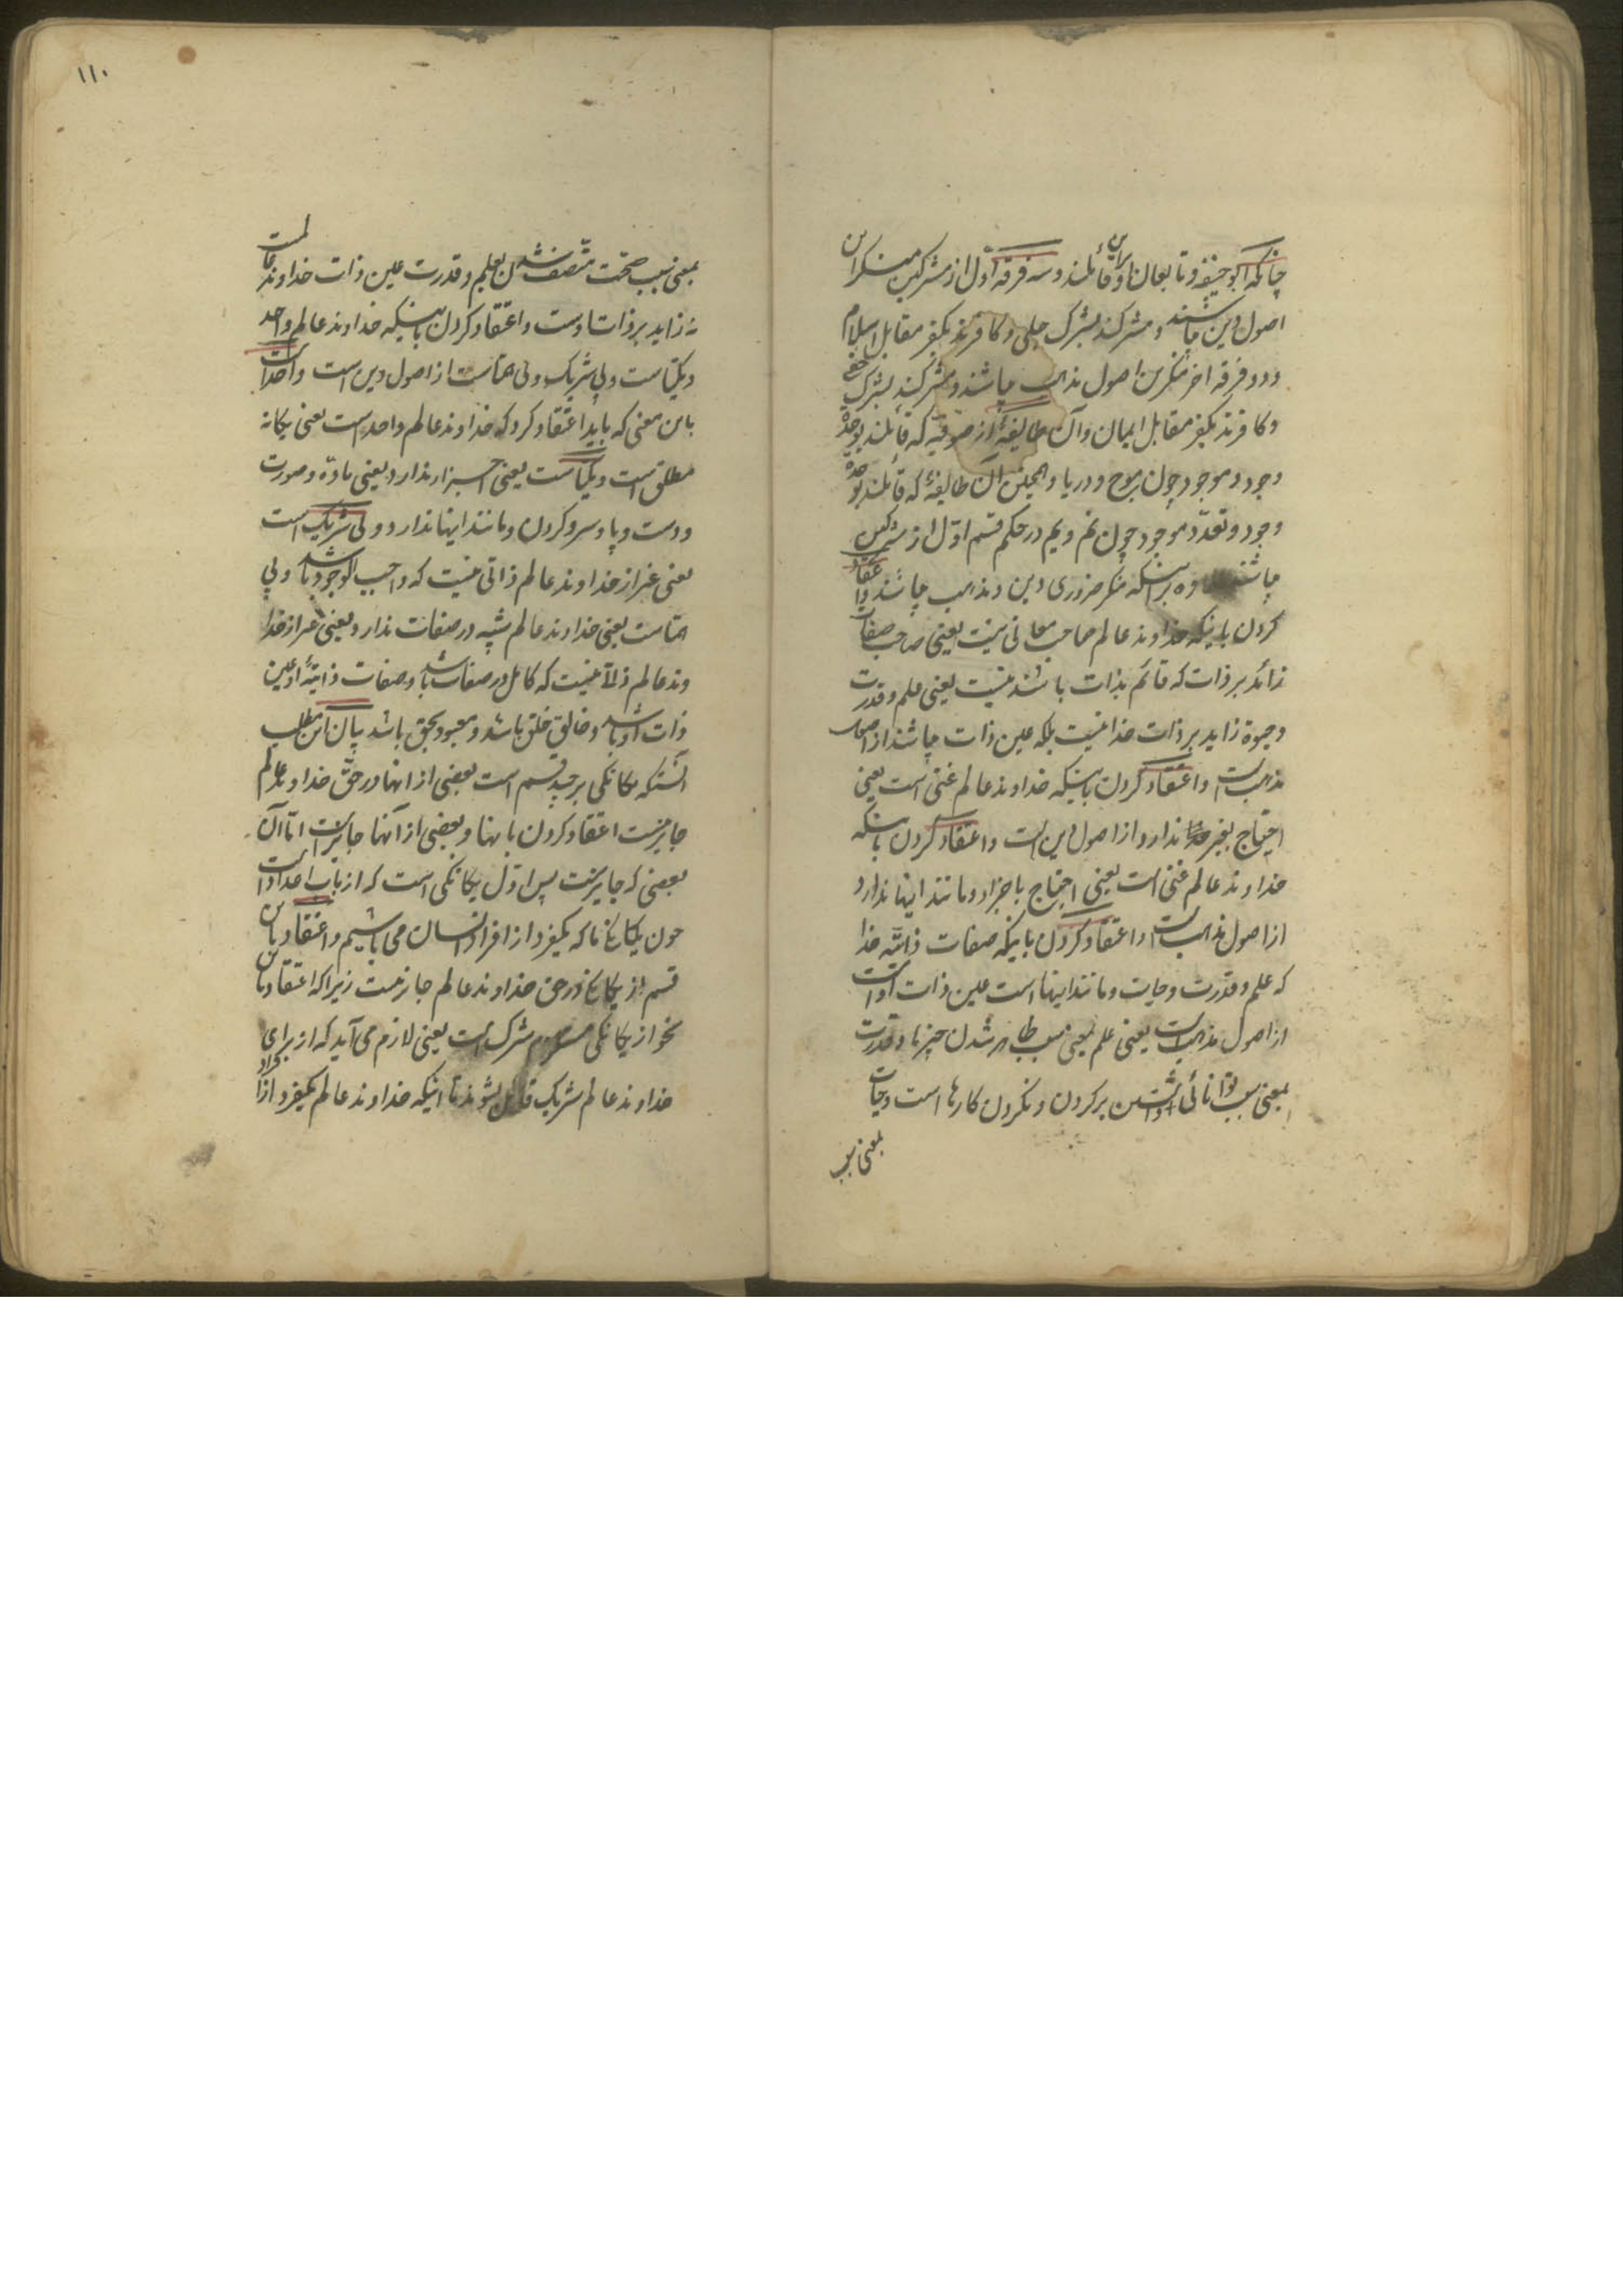 چنانکه ابوحنیفه و تابعان او براین قائلند و سه فرقه اول از مشرکین منکر این
اصول دین میباشند و مشرکند بشرک جلی و کافرند بکفر مقابل اسلام
و دو فرقه اخر منکرین اصول مذهب میباشند و مشرکند بشرک خفی
و کافرند بکفر مقابل ایمان و آن طایفهٔ از صوفیه که قائلند بوحدة
وجود و موجود چون موج و دریا و همچنین آن طایفهٔ که قائلند بوحدة
وجود و تعدّد موجود چون نم و یم در حکم قسم اوّل از مشرکین
میباشند بر اینکه منکر ضروری دین و مذهب میباشند و اعتقاد
کردن باینکه خداوند عالم صاحب معانی نیست یعنی صاحب صفات
زائد بر ذات که قائم بذات باشند نیست یعنی علم و قدرت
و حیوة زاید بر ذات خدا نیست بلکه عین ذات میباشند از اصول
مذهب است و اعتقاد کردن باینکه خداوند عالم غنی است یعنی
احتیاج بغیر خود ندارد از اصول دین است و اعتقاد کردن باینکه
خداوند عالم غنی است یعنی احتیاج باجزاء و مانند اینها ندارد
از اصول مذهب است و اعتقاد کردن باینکه صفات ذاتیّه خدا
که علم و قدرت و حیات و مانند اینها است عین ذات او است
از اصول مذهب است یعنی علم بمعنی سبب ظاهر شدن چیزها و قدرت
بمعنی سبب توانائی داشتن بر کردن و نکردن کارها است و حیات
بمعنی سبب
۱۱۰
بمعنی سبب صحّت متّصف شدن بعلم و قدرت عین ذات خداوند عالم است
نه زاید بر ذات اوست و اعتقاد کردن باینکه خداوند عالم واحد
و یکتاست و بی شریک و بی همتاست از اصول دین است و واحد است
باین معنی که باید اعتقاد کرد که خداوند عالم واحد است یعنی یکانه
مطلق است و یکتاست یعنی اجزا ندارد یعنی مادّه و صورت
و دست و پا و سر و کردن و مانند اینها ندارد و بی شریک است
یعنی غیر از خداوند عالم ذاتی نیست که واجب الوجود باشد و بی
همتاست یعنی خداوند عالم شبیه در صفات ندارد یعنی غیر از خدا
وند عالم ذاتی نیست که کامل در صفات باشد و صفات ذاتیّهٔ او عین
ذات او باشد و خالق خلق باشد و معبود بحق باشد بیان این مطلب
آنستکه یکانکی بر چند قسم است بعضی از انها در حقّ خداوند عالم
جایز نیست اعتقاد کردن بانها و بعضی از آنها جایز است امّا آن
بعضی که جایز نیست پس اوّل یکانکی است که از باب اعداد است
چون یکانکی ما که یکفرد از افراد انسان می باشیم و اعتقاد باین
قسم از یکانکی در حق خداوند عالم جایز نیست زیرا که اعتقاد باین
نحو از یکانکی مستلزم شرک است یعنی لازم می آید که از برای
خداوند عالم شریک قائل بشوند تا اینکه خداوند عالم یکفرد از افراد